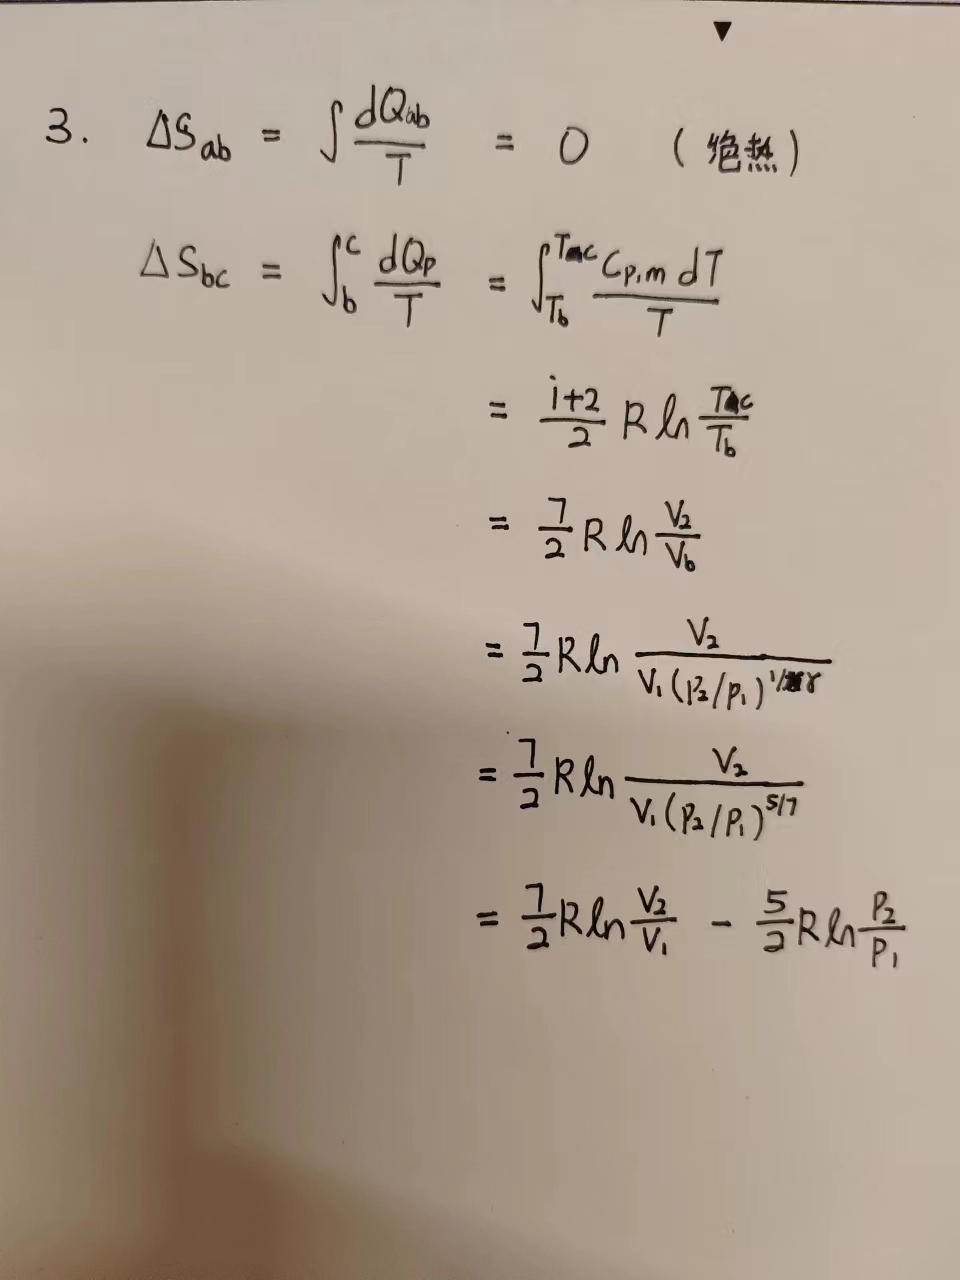 3. ΔS_ab = ∫ dQ_ab / T = 0 (绝热)
ΔS_bc = ∫_b^c dQ_p / T = ∫_{T_b}^{T_c} C_{p,m} dT / T
= (i+2)/2 R ln T_c/T_b
= 7/2 R ln V_2/V_b
= 7/2 R ln V_2 / (V_1(P_2/P_1)^{1/γ})
= 7/2 R ln V_2 / (V_1(P_2/P_1)^{5/7})
= 7/2 R ln V_2/V_1 - 5/2 R ln P_2/P_1